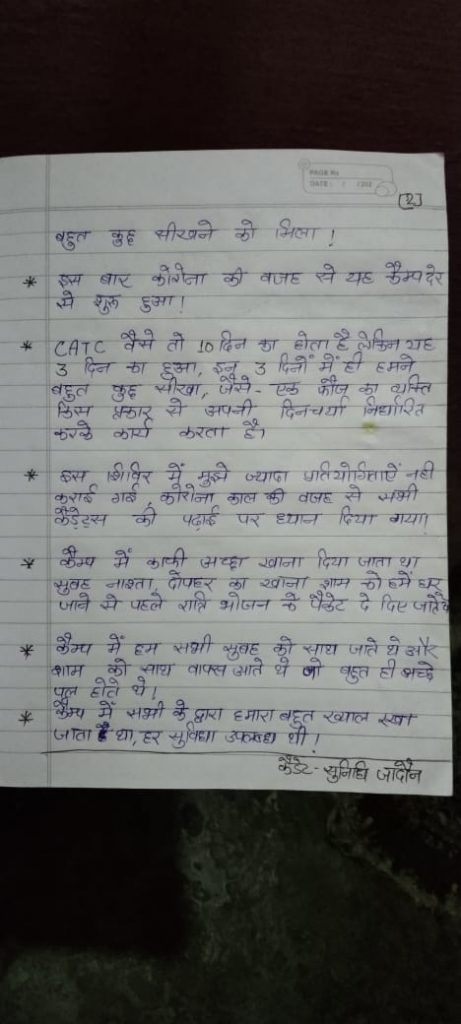 PAGE No
DATE: / /202
[2]
बहुत कुछ सीखने को मिला !
* इस बार कोरोना की वजह से यह कैम्प देर
से शुरू हुआ !
* CATC वैसे तो 10 दिन का होता है लेकिन यह
3 दिन का हुआ, इन 3 दिनों में ही हमने
बहुत कुछ सीखा, जैसे - एक फौज का व्यक्ति
किस प्रकार से अपनी दिनचर्या निर्धारित
करके कार्य करता है।
* इस शिविर में मुझे ज्यादा प्रतियोगिताऐं नही
कराई गई, कोरोना काल की वजह से सभी
कैडेट्स की पढ़ाई पर ध्यान दिया गया।
* कैम्प में काफी अच्छा खाना दिया जाता था
सुबह नाश्ता, दोपहर का खाना शाम को हमें घर
जाने से पहले रात्रि भोजन के पैकेट दे दिए जाते थे
* कैम्प में हम सभी सुबह को साथ जाते थे और
शाम को साथ वापस आते थे जो बहुत ही अच्छे
पल होते थे !
* कैम्प में सभी के द्वारा हमारा बहुत ख्याल रखा
जाता था, हर सुविधा उपलब्ध थी !
कैडेट - सुनिधि जादौन